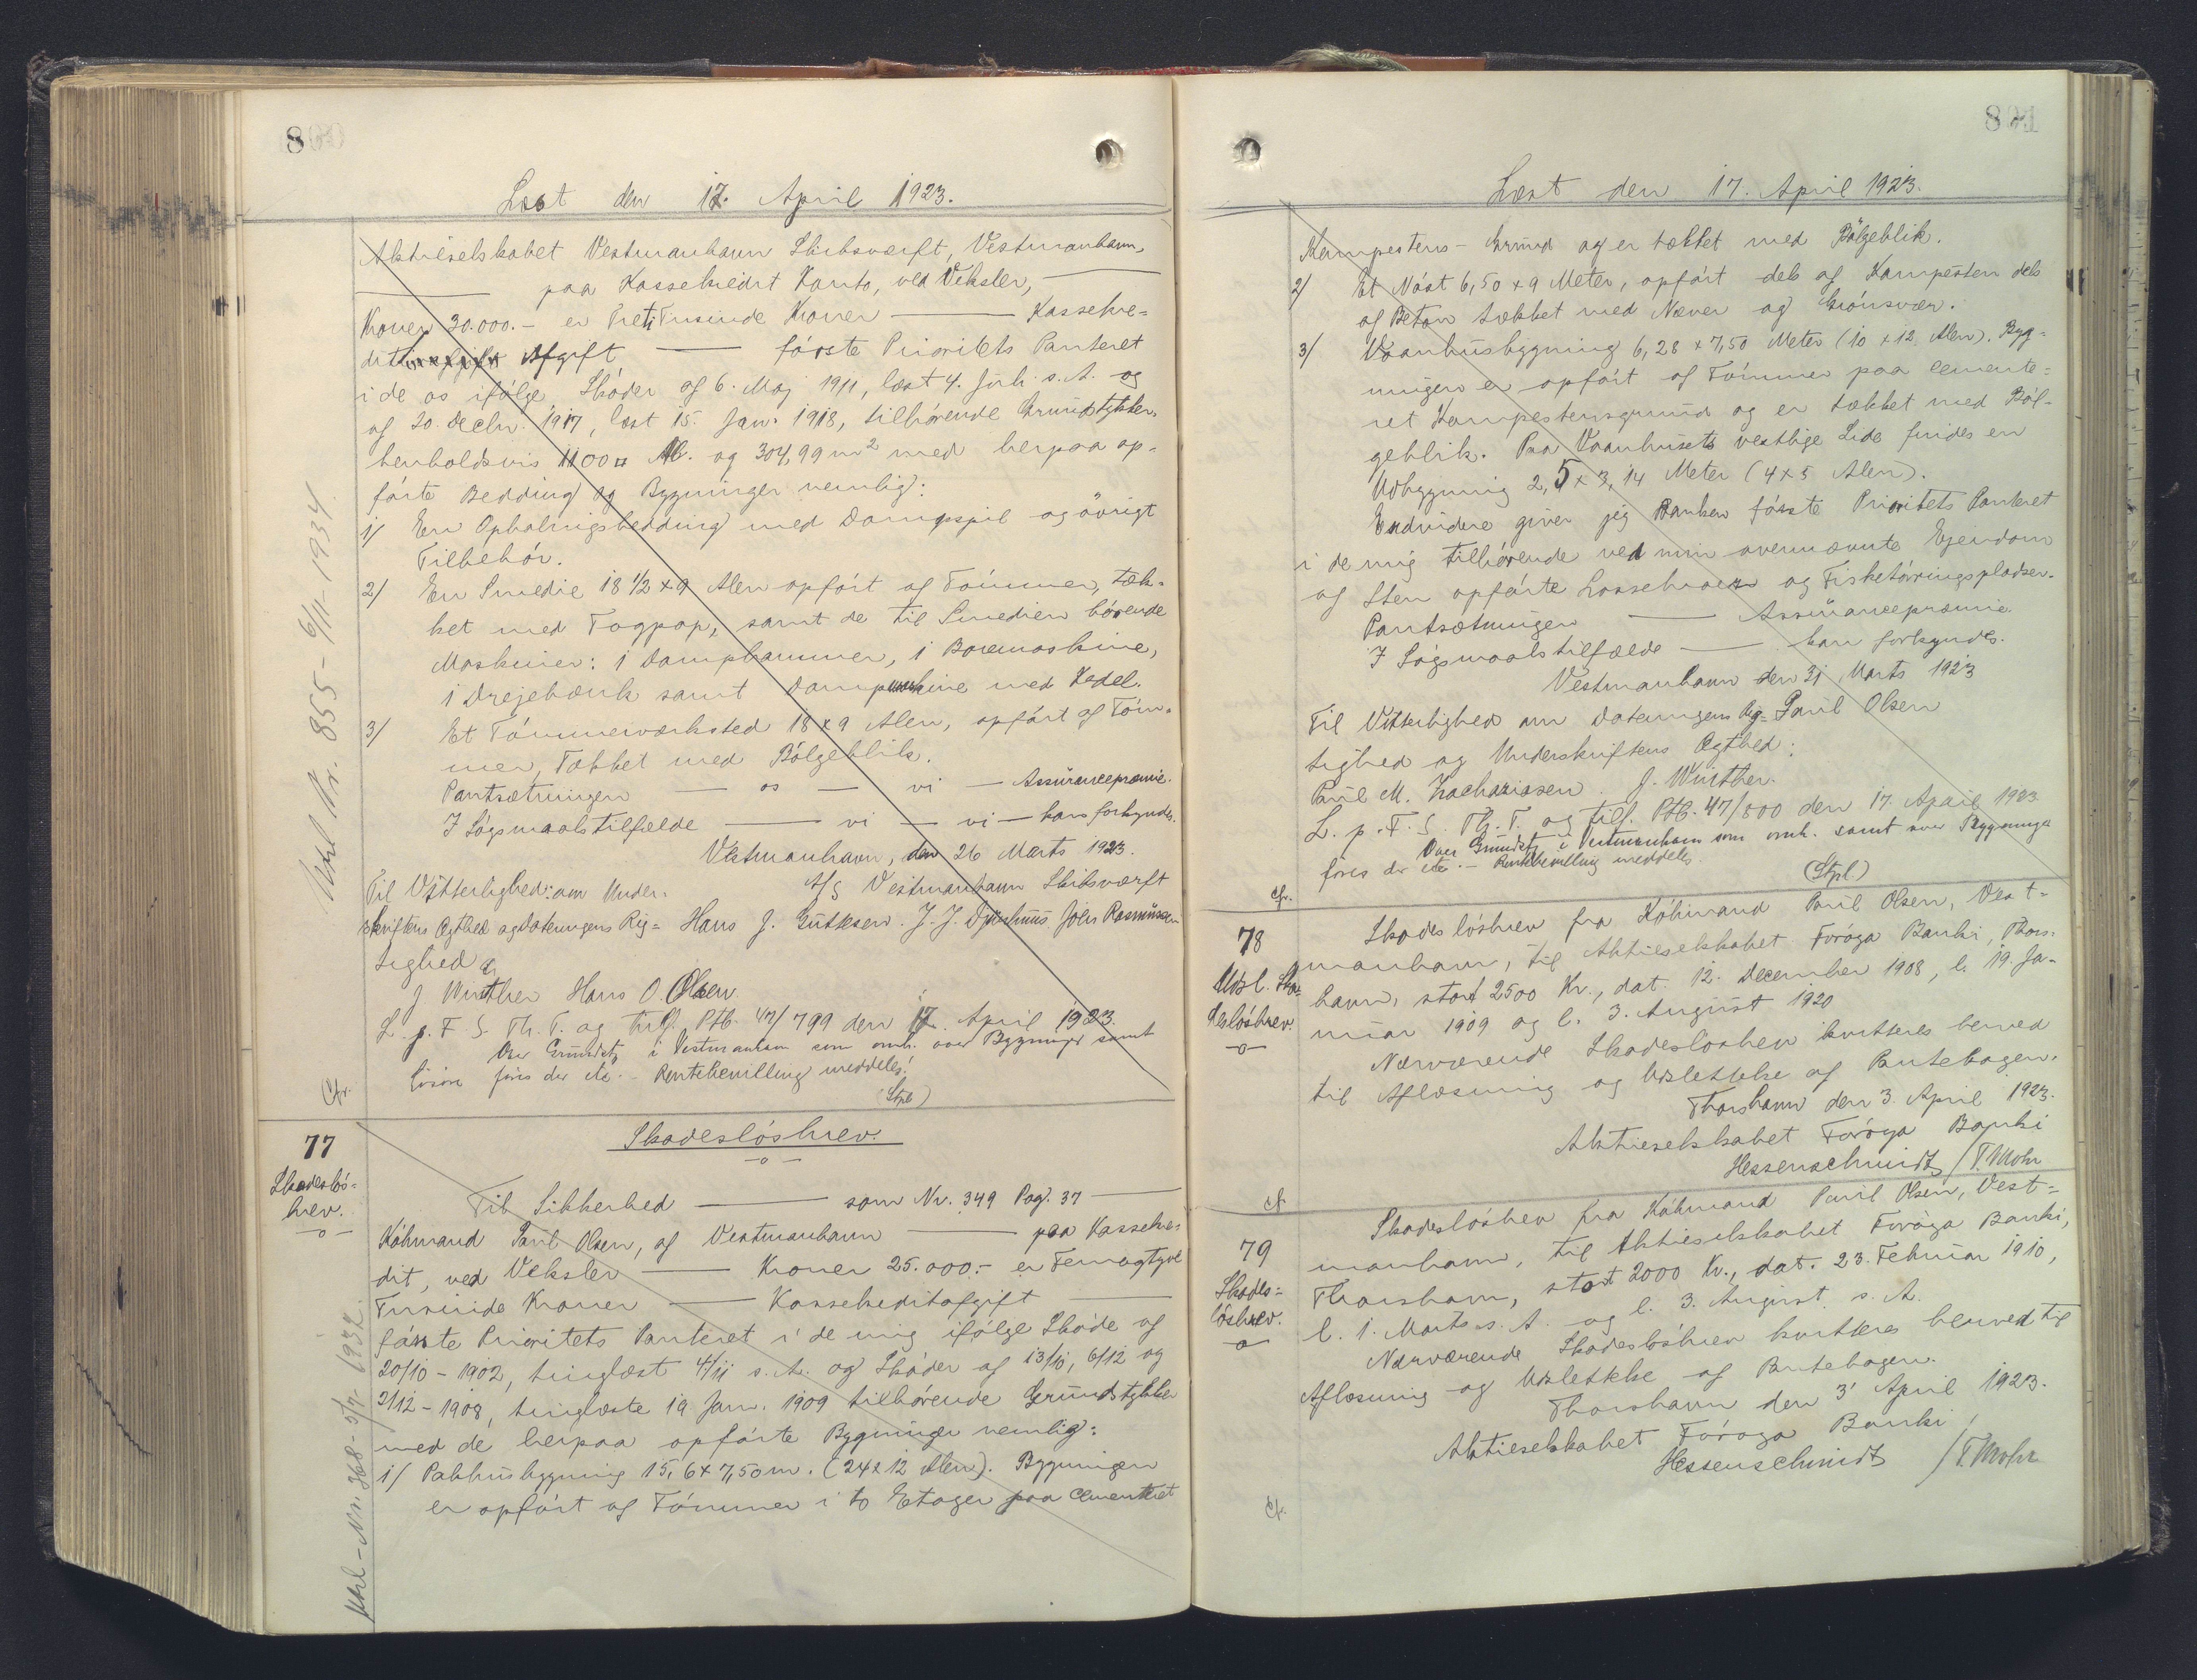 800
Læst den 17. April 1923.
Aktieselskabet Vestmanhavn Skibsværft, Vestmanhavn,
paa Kassekredit Konto, ved Veksler,
Kroner 30.000.- er Treti Tusinde Kroner — Kassekre-
dit Afgift — første Prioritets Panteret
i de os ifølge Skøder af 6. Maj 1911, læst 4. Juli s. A. og
af 20. Decbr. 1917, læst 15. Jan. 1918, tilhørende Grundstykker,
henholdsvis 1100 □ Al. og 304,99 m² med herpaa op-
førte Bedding og Bygninger nemlig:
1/ En Ophalingsbedding med Dampspil og øvrigt
Tilbehør.
2/ En Smedie 18 1/2 x 9 Alen opført af Tømmer, tæk-
ket med Tagpap, samt de til Smedien hørende
Maskiner: 1 Damphammer, 1 Boremaskine,
1 Drejebænk samt Dampmaskine med Kedel.
3/ Et Tømmerværksted 18 x 9 Alen, opført af Tøm-
mer, Tækket med Bølgeblik.
Pantsætningen — os — vi — Assurancepræmie.
I Søgsmaalstilfælde — vi — vi — kan forkyndes.
Vestmanhavn, den 26 Marts 1923.
Til Vitterlighed: om Under-
A/S Vestmanhavn Skibsværft
skriftens Ægthed og Dateringens Rig-
Hans J. Guttesen. J. J. Djurhuus Joen Rasmussen
tighed
J Winther Hans O. Olsen
L. p. F. S. Th. T. og tilf. Ptb. 47/799 den 17. April 1923.
Over Grundst. i Vestmanhavn som omh. over Bygninger samt
Løsøre føres der etc. - Rentebevilling meddeles.
(Stpl)
Cfr.
Udsl Nr. 855 - 6/11-1934
77
Skadesløs-
brev.
-o-
Skadesløsbrev.
-o-
Til Sikkerhed — som Nr. 349 Pag. 37 —
Købmand Poul Olsen, af Vestmanhavn — paa Kassekre-
dit, ved Veksler — Kroner 25.000.- er Femogtyve
Tusinde Kroner — Kassekreditafgift —
første Prioritets Panteret i de mig ifølge Skøde af
20/10 - 1902, tinglæst 4/11 s. A. og Skøder af 13/10, 6/12 og
2/12 - 1908, tinglæste 19 Jan. 1909 tilhørende Grundstykker
med de herpaa opførte Bygninger nemlig:
1/ Pakhusbygning 15,6 x 7,50 m. (24 x 12 Alen). Bygningen
er opført af Tømmer i to Etager paa Cementeret
Udsl - Nr. 368 - 5/7 1932.
801
Læst den 17. April 1923.
Kampestens - Grund og er tækket med Bølgeblik.
2/ Et Nøst 6,50 x 9 Meter, opført dels af Kampesten dels
af Beton tækket med Næver og Grønsvær.
3/ Vaanhusbygning 6,28 x 7,50 Meter (10 x 12 Alen). Byg-
ningen er opført af Tømmer paa cemente-
ret Kampestensgrund og er tækket med Bøl-
geblik. Paa Vaanhusets vestlige Side findes en
Udbygning 2,5 x 3,14 Meter (4 x 5 Alen).
Endvidere giver jeg Banken første Prioritets Panteret
i de mig tilhørende ved min ovennævnte Ejendom
af Sten opførte Lossebroer og Fisketørringspladser.
Pantsætningen — Assurancepræmie
I Søgsmaalstilfælde — kan forkyndes.
Vestmanhavn den 31 Marts 1923
Til Vitterlighed om Dateringens Rig-
Poul Olsen
tighed og Underskriftens Ægthed:
Poul M. Zachariasen. J. Winther.
L. p. F. S. Th. T. og tilf. Ptb. 47/800 den 17. April 1923
Over Grundst. i Vestmanhavn som omh. samt over Bygninger
føres der etc. - Rentebevilling meddeles.
(Stpl)
cfr.
78
Udsl. Ska-
desløsbrev.
-o-
Skadesløsbrev fra Købmand Poul Olsen, Vest-
manhavn, til Aktieselskabet Føroya Banki, Thors-
havn, stort 2500 Kr., dat. 12. December 1908, l. 19. Ja-
nuar 1909 og l. 3. August 1920
Nærværende Skadesløsbrev kvitteres herved
til Aflæsning og Udslettelse af Pantebogen.
Thorshavn den 3. April 1923.
Aktieselskabet Føroya Banki
Hessenschmidt / T. Mohr
cf.
79
Skades-
løsbrev.
-o-
Skadesløsbrev fra Købmand Poul Olsen, Vest-
manhavn, til Aktieselskabet Føroya Banki,
Thorshavn, stort 2000 Kr., dat. 23. Februar 1910,
l. 1. Marts s. A. og l. 3. August s. A.
Nærværende Skadesløsbrev kvitteres herved til
Aflæsning og Udslettelse af Pantebogen.
Thorshavn den 3' April 1923.
Aktieselskabet Føroya Banki
Hessenschmidt / T. Mohr
cfr.